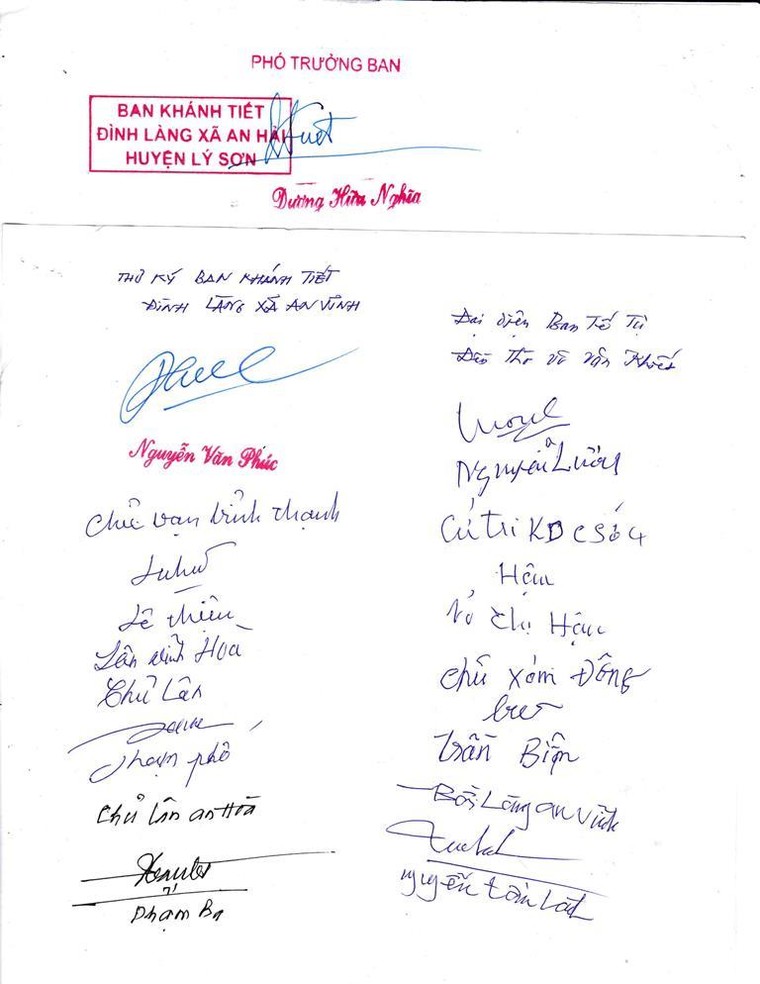 PHÓ TRƯỞNG BAN
BAN KHÁNH TIẾT
ĐÌNH LÀNG XÃ AN HẢI
HUYỆN LÝ SƠN
Dương Hữu Nghĩa
THƯ KÝ BAN KHÁNH TIẾT
ĐÌNH LÀNG XÃ AN VĨNH
Nguyễn Văn Phúc
Chủ vạn Vĩnh Thạnh
Lê Thiên
Lân Vĩnh Hoà
Chủ Lân
Phạm phố
Chủ lân an Hòa
Phạm Ba
Đại diện Ban Tế Tự
Đền Thờ Võ Văn Khiết
Nguyễn Lương
Cử tri KDC Số 4
Hậm
Võ Thị Hậm
chủ xóm Đông
trần Biện
Bồi Làng an Vĩnh
nguyễn